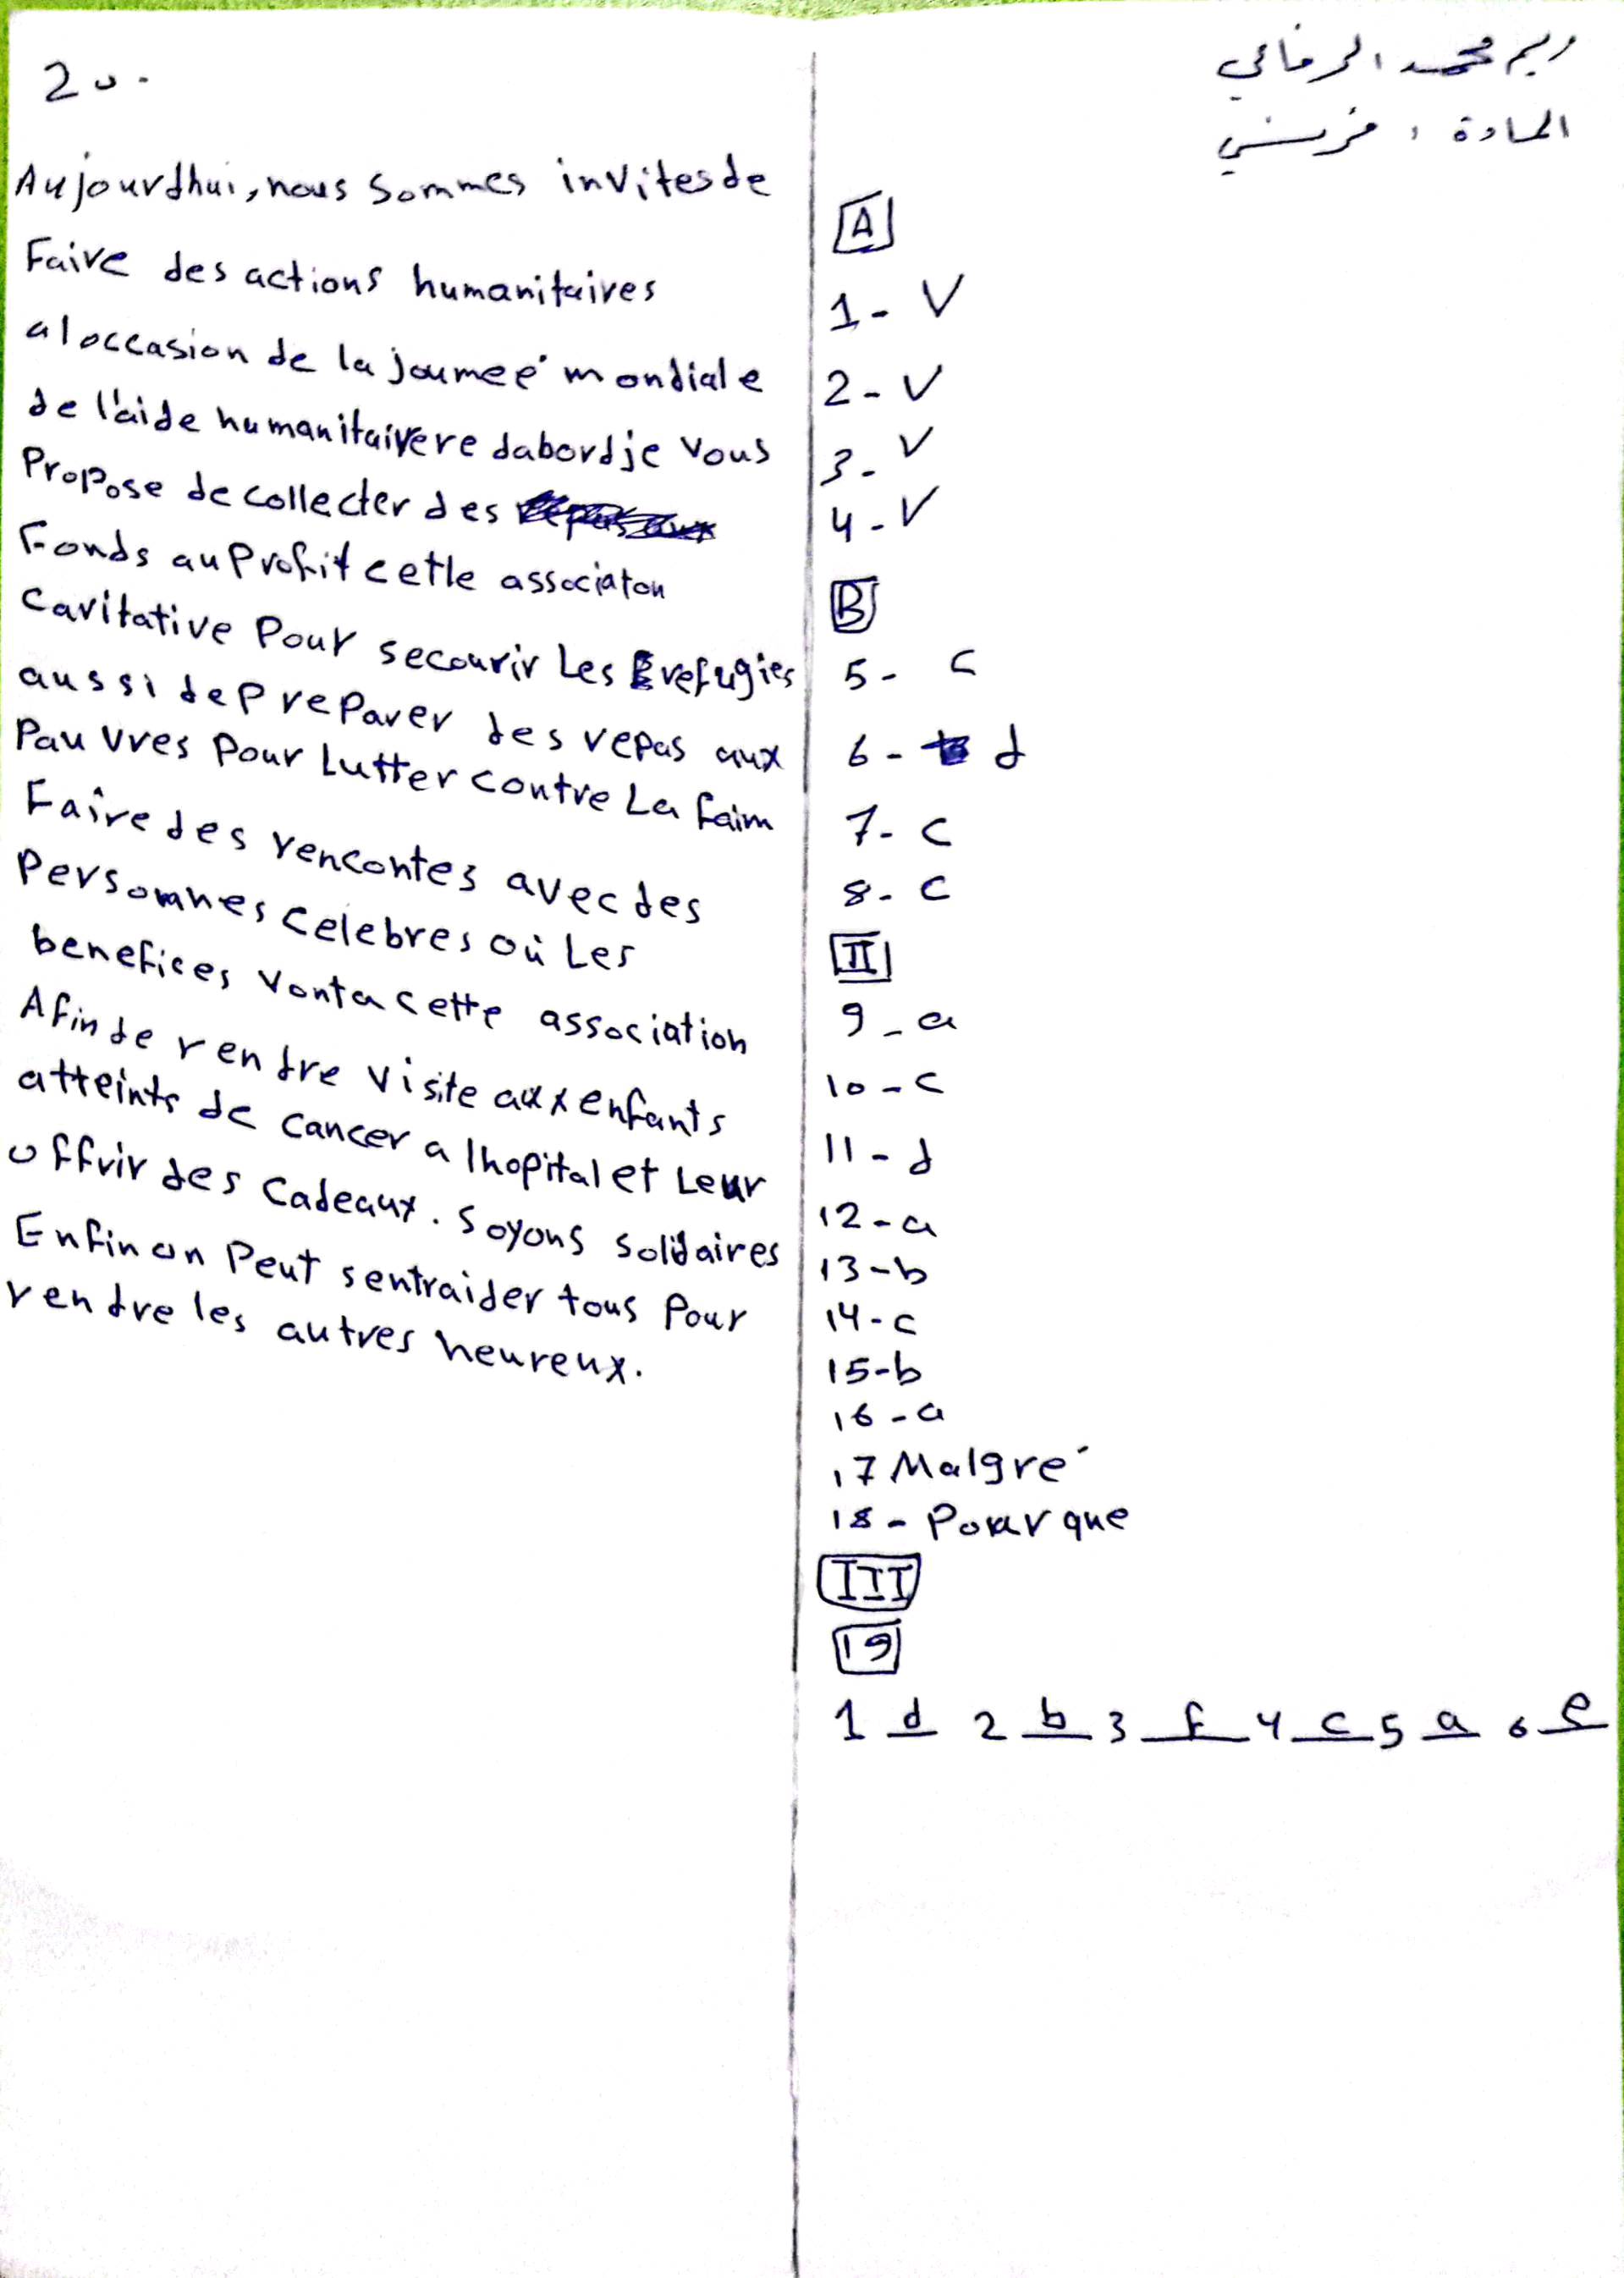 ريم محمد الرفاعي
المادة : فرنسي
A
1- V
2- V
3- V
4- V
B
5- c
6- d
7- c
8- c
II
9- a
10- c
11- d
12- a
13- b
14- c
15- b
16- a
17 Malgré
18- Pour que
III
19
1 d 2 b 3 f 4 c 5 a 6 e
20-
Aujourdhui, nous sommes invites de
Faire des actions humanitaires
a l occasion de la joumeé mondiale
de l'aide humanitaivere dabord je vous
Propose de collecter des
Fonds au Profit cette associaton
Caritative Pour secourir Les refugies
aussi de preparer des repas aux
Pauvres Pour Lutter contre La faim
Faire des rencontes avec des
Personnes celebres où Les
benefices vont a cette association
Afin de rendre visite aux enfants
atteints de cancer a lhopital et Leur
offrir des cadeaux. Soyons solidaires
Enfin on Peut sentraider tous Pour
rendre les autres heureux.